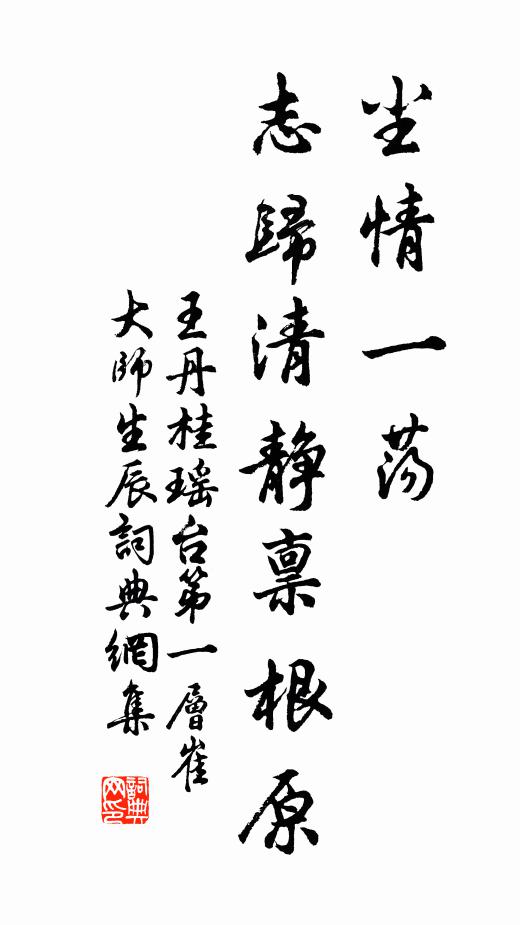 尘情一荡
志歸清静禀根原
王丹桂瑶台第一層崔
大師生辰詞典網集
詞典网印